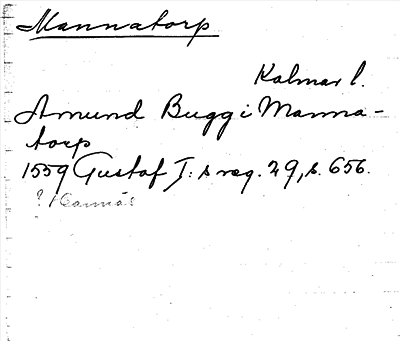 Mannatorp
Kalmar l.
Amund Bugg i Manna-
torp
1559 Gustaf I: s reg. 29, s. 656.
?